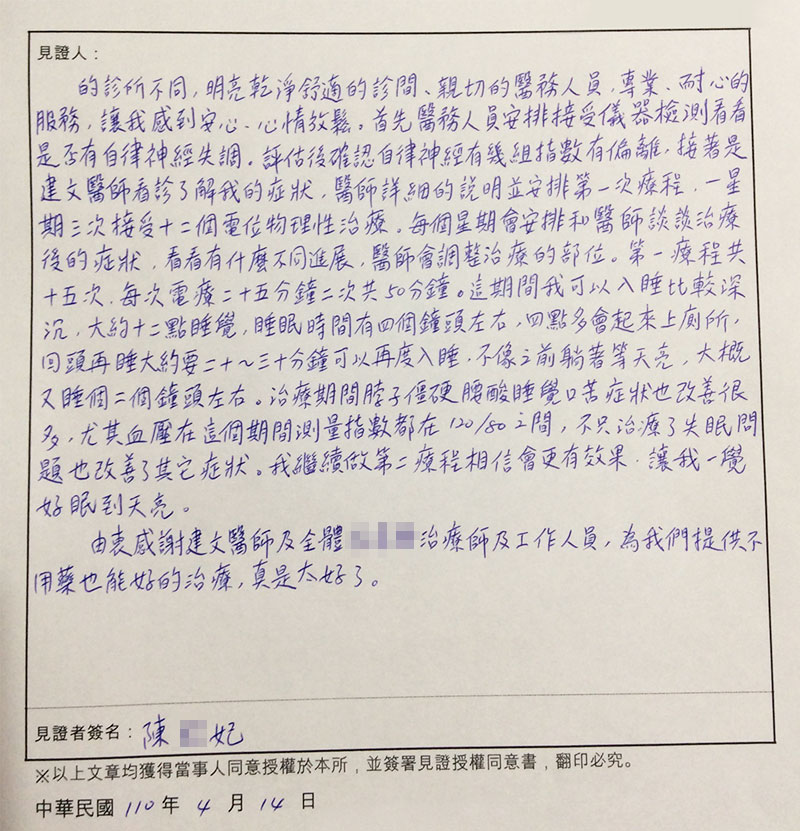 見證人：
的診所不同，明亮乾淨舒適的診間、親切的醫務人員，專業、耐心的
服務，讓我感到安心、心情放鬆。首先醫務人員安排接受儀器檢測看看
是否有自律神經失調。評估後確認自律神經有幾組指數有偏離，接著是
建文醫師看診了解我的症狀，醫師詳細的說明並安排第一次療程，一星
期三次接受十二個電位物理性治療。每個星期會安排和醫師談談治療
後的症狀，看看有什麼不同進展，醫師會調整治療的部位。第一療程共
十五次，每次電療二十五分鐘二次共50分鐘。這期間我可以入睡比較深
沉，大約十二點睡覺，睡眠時間有四個鐘頭左右，四點多會起來上廁所，
回頭再睡大約要二十～三十分鐘可以再度入睡，不像之前躺著等天亮，大概
又睡個二個鐘頭左右。治療期間脖子僵硬腰酸睡覺口苦症狀也改善很
多，尤其血壓在這個期間測量指數都在120/80之間，不只治療了失眠問
題也改善了其它症狀。我繼續做第二療程相信會更有效果，讓我一覺
好眠到天亮。
由衷感謝建文醫師及全體治療師及工作人員，為我們提供不
用藥也能好的治療，真是太好了。
見證者簽名：陳妃
※以上文章均獲得當事人同意授權於本所，並簽署見證授權同意書，翻印必究。
中華民國 110 年 4 月 14 日